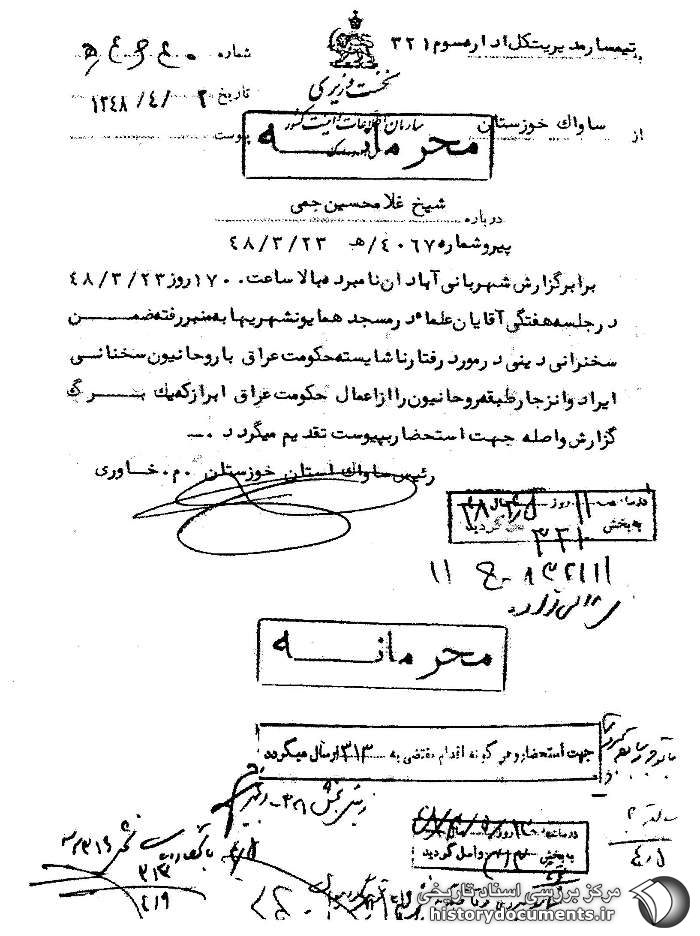 به تیمسار مدیریت کل اداره سوم ۳۲۱
شماره
نخست وزیری
تاریخ ۲ /۴/ ۱۳۴۸
سازمان اطلاعات و امنیت کشور
از ساواک خوزستان
پیوست
محرمانه
درباره شیخ غلامحسین جمی
پیرو شماره ۴۰۶۷/ هـ ۴۸/۳/۲۳
برابر گزارش شهربانی آبادان نامبرده بالا ساعت ۱۷۰۰ روز ۴۸/۳/۲۳
در جلسه هفتگی آقایان علماء در مسجد همایونشهریها به منبر رفته ضمن
سخنرانی دینی در مورد رفتار ناشایسته حکومت عراق با روحانیون سخنانی
ایراد و انزجار طبقه روحانیون را از اعمال حکومت عراق ابراز که یک برگ
گزارش واصله جهت استحضار بپیوست تقدیم میگردد .
رئیس ساواک استان خوزستان . م . خاوری
در ساعت ۱۱ روز
به بخش ۳۲۱ گردید
محرمانه
جهت استحضار و هر گونه اقدام مقتضی به ۳۱۳ ارسال میگردد
رئیس بخش ۳۲۱
در ساعت روز
به بخش ۳۱۳ واصل گردید
۳۱۳
۴/۹
۴/۵
مرکز بررسی اسناد تاریخی
historydocuments.ir